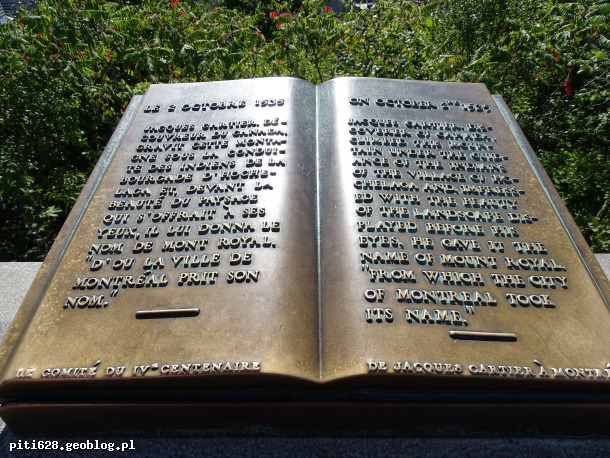 LE 2 OCTOBRE 1535
JACQUES CARTIER DÉ-
COUVREUR DU CANADA,
GRAVIT CETTE MONTA-
GNE SOUS LA CONDUI-
TE DES INDIENS DE LA
BOURGADE D'HOCHE-
LAGA ET DEVANT LA
BEAUTÉ DU PAYSAGE
QUI S'OFFRAIT A SES
YEUX, IL LUI DONNA LE
NOM DE MONT ROYAL.
"D'OU LA VILLE DE
MONTRÉAL PRIT SON
NOM."
LE COMITÉ DU IVe CENTENAIRE
ON OCTOBER 2ND 1535
JACQUES CARTIER, DIS-
COVERER OF CANADA,
CLIMBED THE MOUN-
TAIN UNDER THE GUID-
ANCE OF THE INDIANS
OF THE VILLAGE OF HO-
CHELAGA AND IMPRESS-
ED WITH THE BEAUTY
OF THE LANDSCAPE DIS-
PLAYED BEFORE HIS
EYES, HE GAVE IT THE
NAME OF MOUNT ROYAL
"FROM WHICH THE CITY
OF MONTREAL TOOK
ITS NAME."
DE JACQUES CARTIER À MONTRÉ
piti628.geoblog.pl